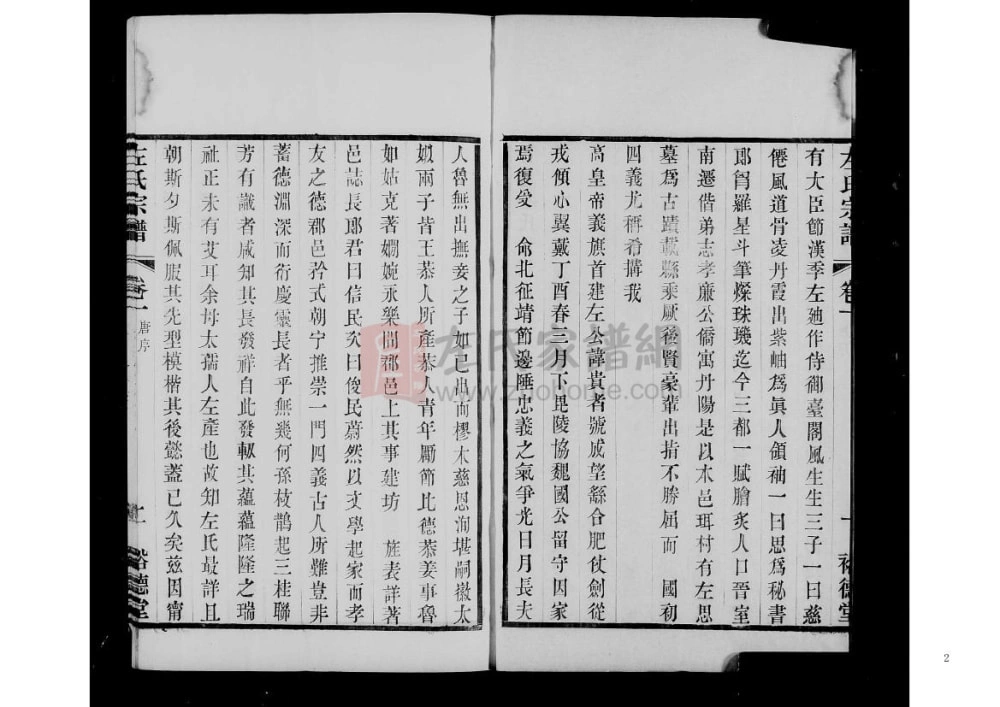 左氏宗譜
卷一
一
裕德堂
有大臣節漢季左廸作侍御臺閣風生生三子一曰慈
僊風道骨凌丹霞出紫岫爲眞人領袖一曰思爲秘書
郎胷羅星斗筆燦珠璣迄今三都一賦膾炙人口晉室
南遷偕弟志孝廉公僑寓丹陽是以本邑珥村有左思
墓爲古蹟載縣乘厥後賢豪輩出指不勝屈而 國初
四義尤稱希搆我
高皇帝義旗首建左公諱貴者號成望繇合肥仗劍從
戎傾心翼戴丁酉春三月下毘陵協魏國公留守因家
焉復受 命北征靖節邊陲忠義之氣爭光日月長夫
人魯無出撫妾之子如己出而樛木慈恩洵堪嗣徽太
姒兩子皆王恭人所產恭人青年勵節比德恭姜事魯
如姑克著嫺婉永樂間郡邑上其事建坊 旌表詳著
邑誌長郎君曰信民次曰俊民蔚然以文學起家而孝
友之德郡邑矜式朝宁推崇一門四義古人所難豈非
蓄德淵深而衍慶靈長者乎無幾何孫枝鵲起三桂聯
芳有識者咸知其長發祥自此發軔其蘊蘊隆隆之瑞
祉正未有艾耳余母太孺人左產也故知左氏最詳且
朝斯夕斯佩服其先型模楷其後懿蓋已久矣茲因甯
左氏宗譜
卷一
唐序
二
裕德堂
左氏家譜網
www.zuohome.com
2